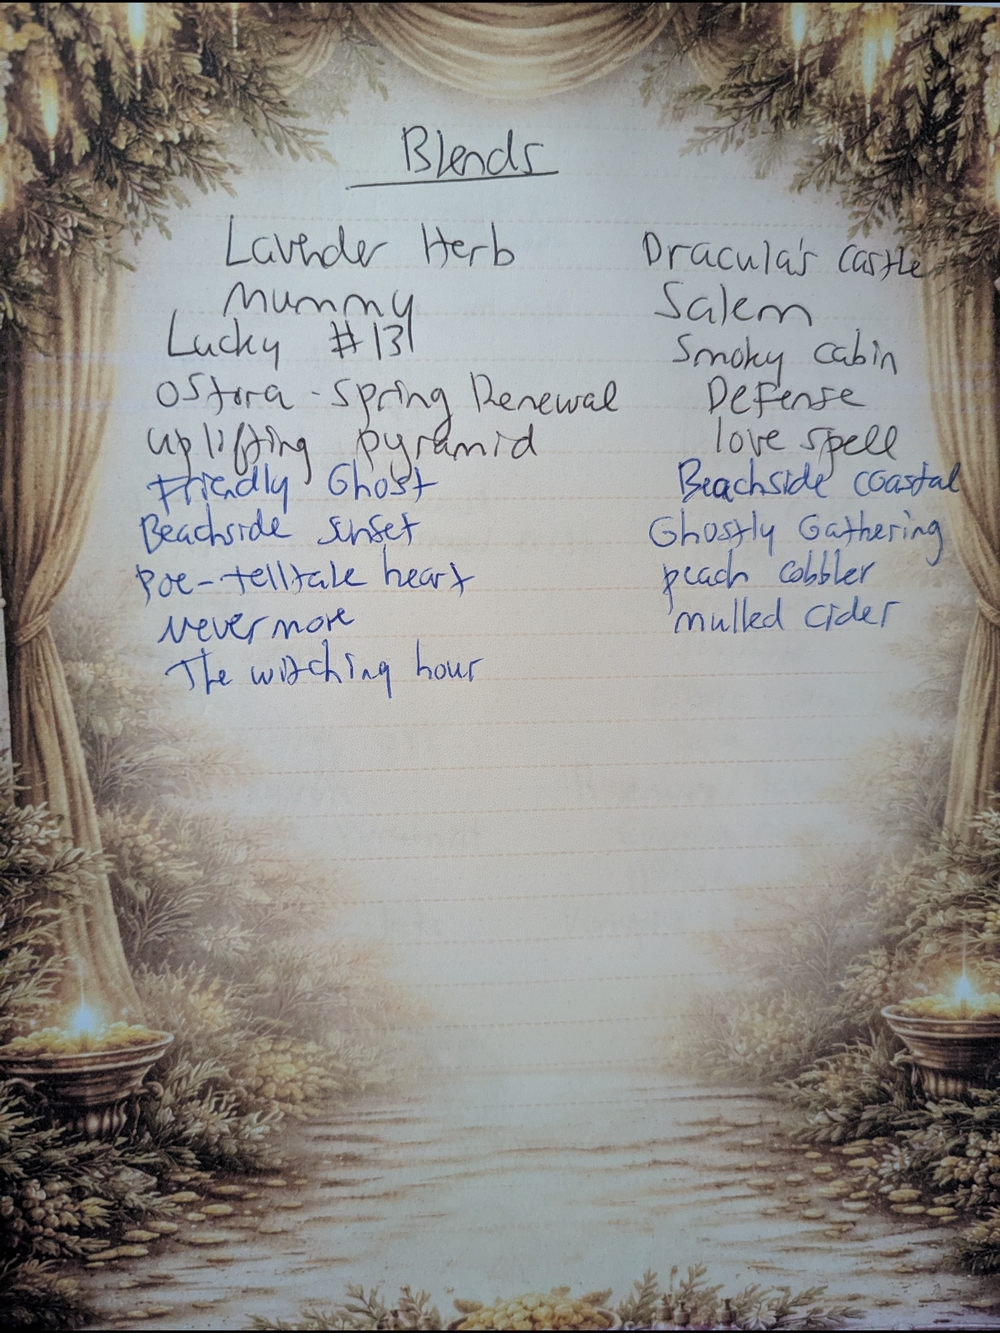 Blends
Lavender Herb
Mummy
Lucky #13
Ostora - Spring Renewal
Uplifting pyramid
Friendly Ghost
Beachside sunset
Poe - telltale heart
Nevermore
The witching hour
Dracula's castle
Salem
Smoky cabin
Defense
love spell
Beachside coastal
Ghostly Gathering
peach cobbler
mulled cider